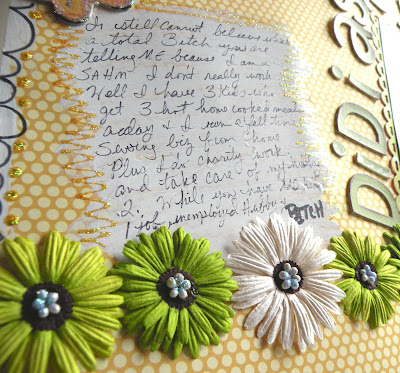 I still cannot believe what
a total Bitch you are
telling ME because I am a
SAHM I dont really work
Well I have 3 Kids who
get 3 hot home cooked meals
aday & I run a full time
Sewing biz from home
Plus I do charity work
and take care of my
2. While you have
1 job unemployed Hubby BITCH
DiDi